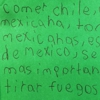 comer chile,
mexicana, tor
mexicanas, es
de mexico, se
mas importan
tirar fuegos